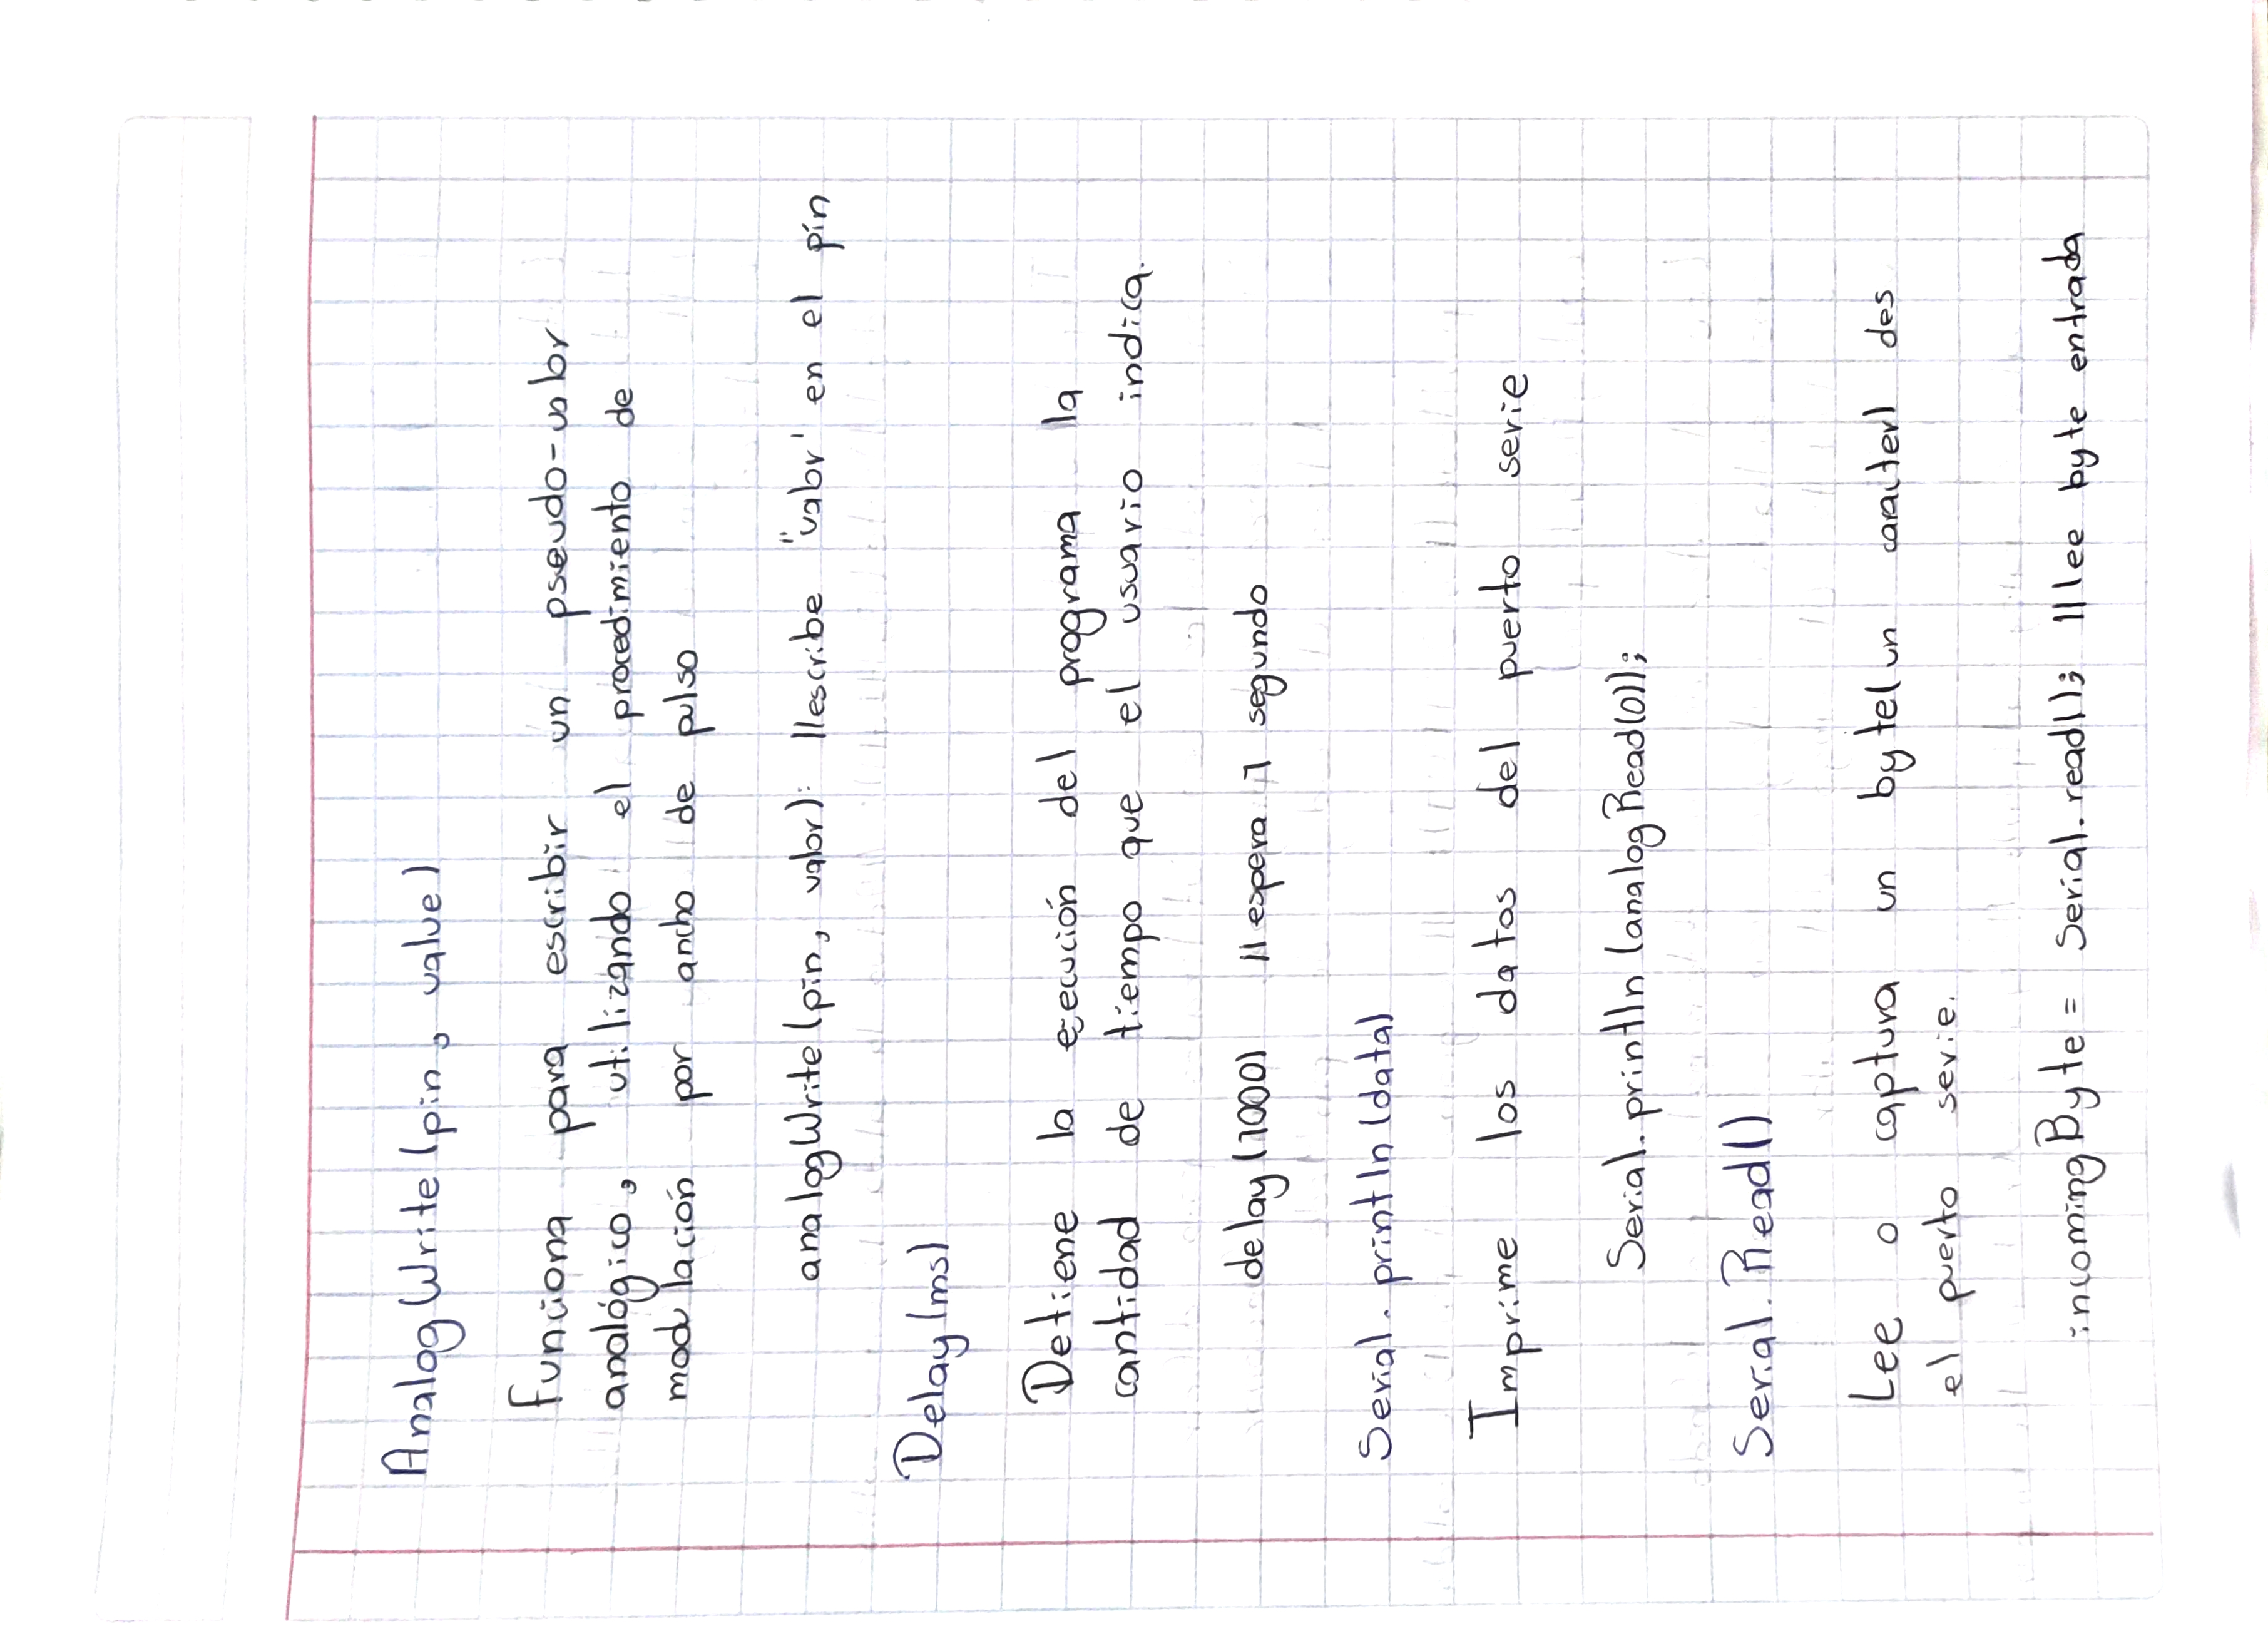 Analog Write (pin, value)
Funciona para escribir un pseudo-valor
analógico, utilizando el procedimiento de
modulación por ancho de pulso
analogWrite (pin, valor): //escribe "valor' en el pin
Delay (ms)
Detiene la eecución del programa la
cantidad de tiempo que el usuario indica.
delay (1000) // espera 1 segundo
Serial. println (data)
Imprime los datos del puerto serie
Serial. println (analog Read(0));
Serial. Read()
Lee o captura un byte(un caracter) des
el puerto serie.
incoming Byte = Serial. read(); //lee byte entrada